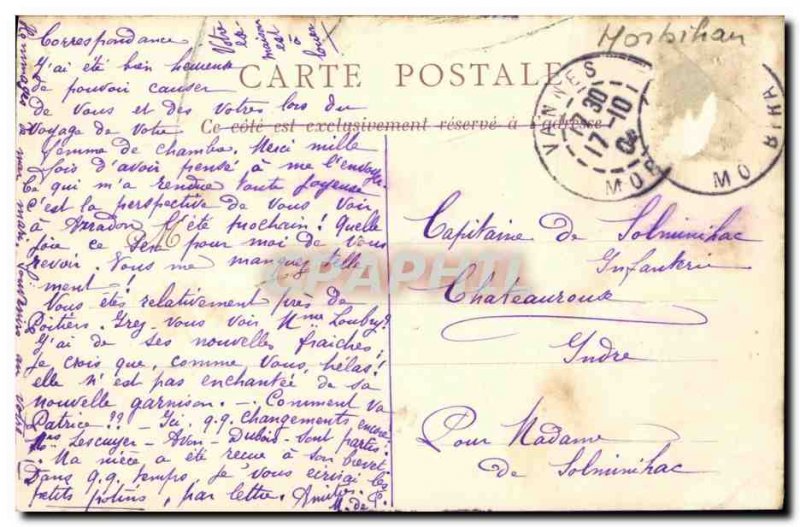 Correspondance
J'ai été bien heureuse
de pouvoir causer
de Vous et des Votres lors du
Voyage de Votre
femme de chambre, Merci mille
fois d'avoir pensé à me l'envoyer
Ce qui m'a rendue toute Joyeuse
c'est la perspective de Vous Voir
à Arradon l'été prochain! Quelle
Joie ce sera pour moi de Vous
revoir. Vous me manquez telle
ment!
Vous êtes relativement près de
Poitiers. Irez-Vous Voir Mme Loubry?
J'ai de ses nouvelles fraîches;
Je crois que, comme Vous, hélas!
elle n'est pas enchantée de sa
nouvelle garnison. - Comment va
Patrice?? - Ici q.q. changements encore
Mes Lescuyer - Aven - Dubois - sont partis.
- Ma nièce a été reçue à son brevet
Dans q.q. temps, je Vous écrirai les
petits potins, par lettre. Amitiés
M. de
Votre
maison
est
à
louer
CARTE POSTALE
Ce côté est exclusivement réservé à l'adresse
Morbihan
VANNES
7 30
17-10
MORBIHAN
Capitaine de Solminihac
Infanterie
Chateauroux
Indre
Pour Madame
de Solminihac
CPAPHIL